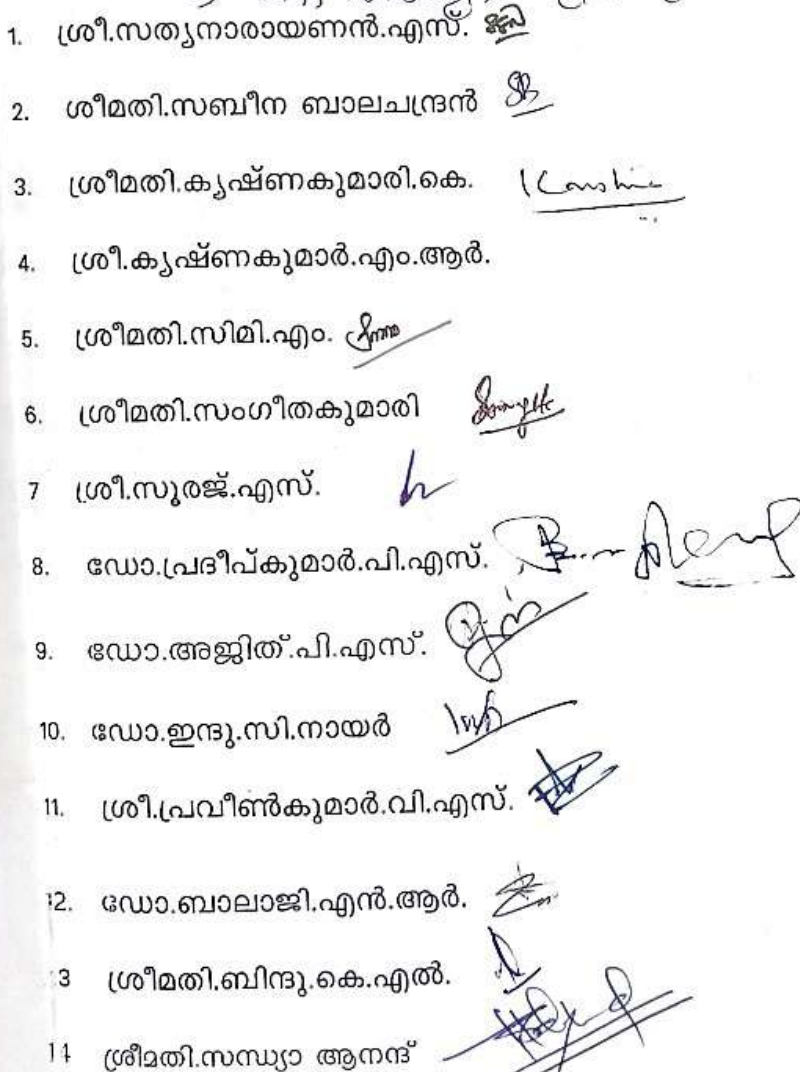 1. ശ്രീ.സത്യനാരായണൻ.എസ്.
2. ശീമതി.സബീന ബാലചന്ദ്രൻ
3. ശ്രീമതി.കൃഷ്ണകുമാരി.കെ.
4. ശ്രീ.കൃഷ്ണകുമാർ.എം.ആർ.
5. ശ്രീമതി.സിമി.എം.
6. ശ്രീമതി.സംഗീതകുമാരി
7 ശ്രീ.സൂരജ്.എസ്.
8. ഡോ.പ്രദീപ്കുമാർ.പി.എസ്.
9. ഡോ.അജിത്.പി.എസ്.
10. ഡോ.ഇന്ദു.സി.നായർ
11. ശ്രീ.പ്രവീൺകുമാർ.വി.എസ്.
12. ഡോ.ബാലാജി.എൻ.ആർ.
13 ശ്രീമതി.ബിന്ദു.കെ.എൽ.
14 ശ്രീമതി.സന്ധ്യാ ആനന്ദ്